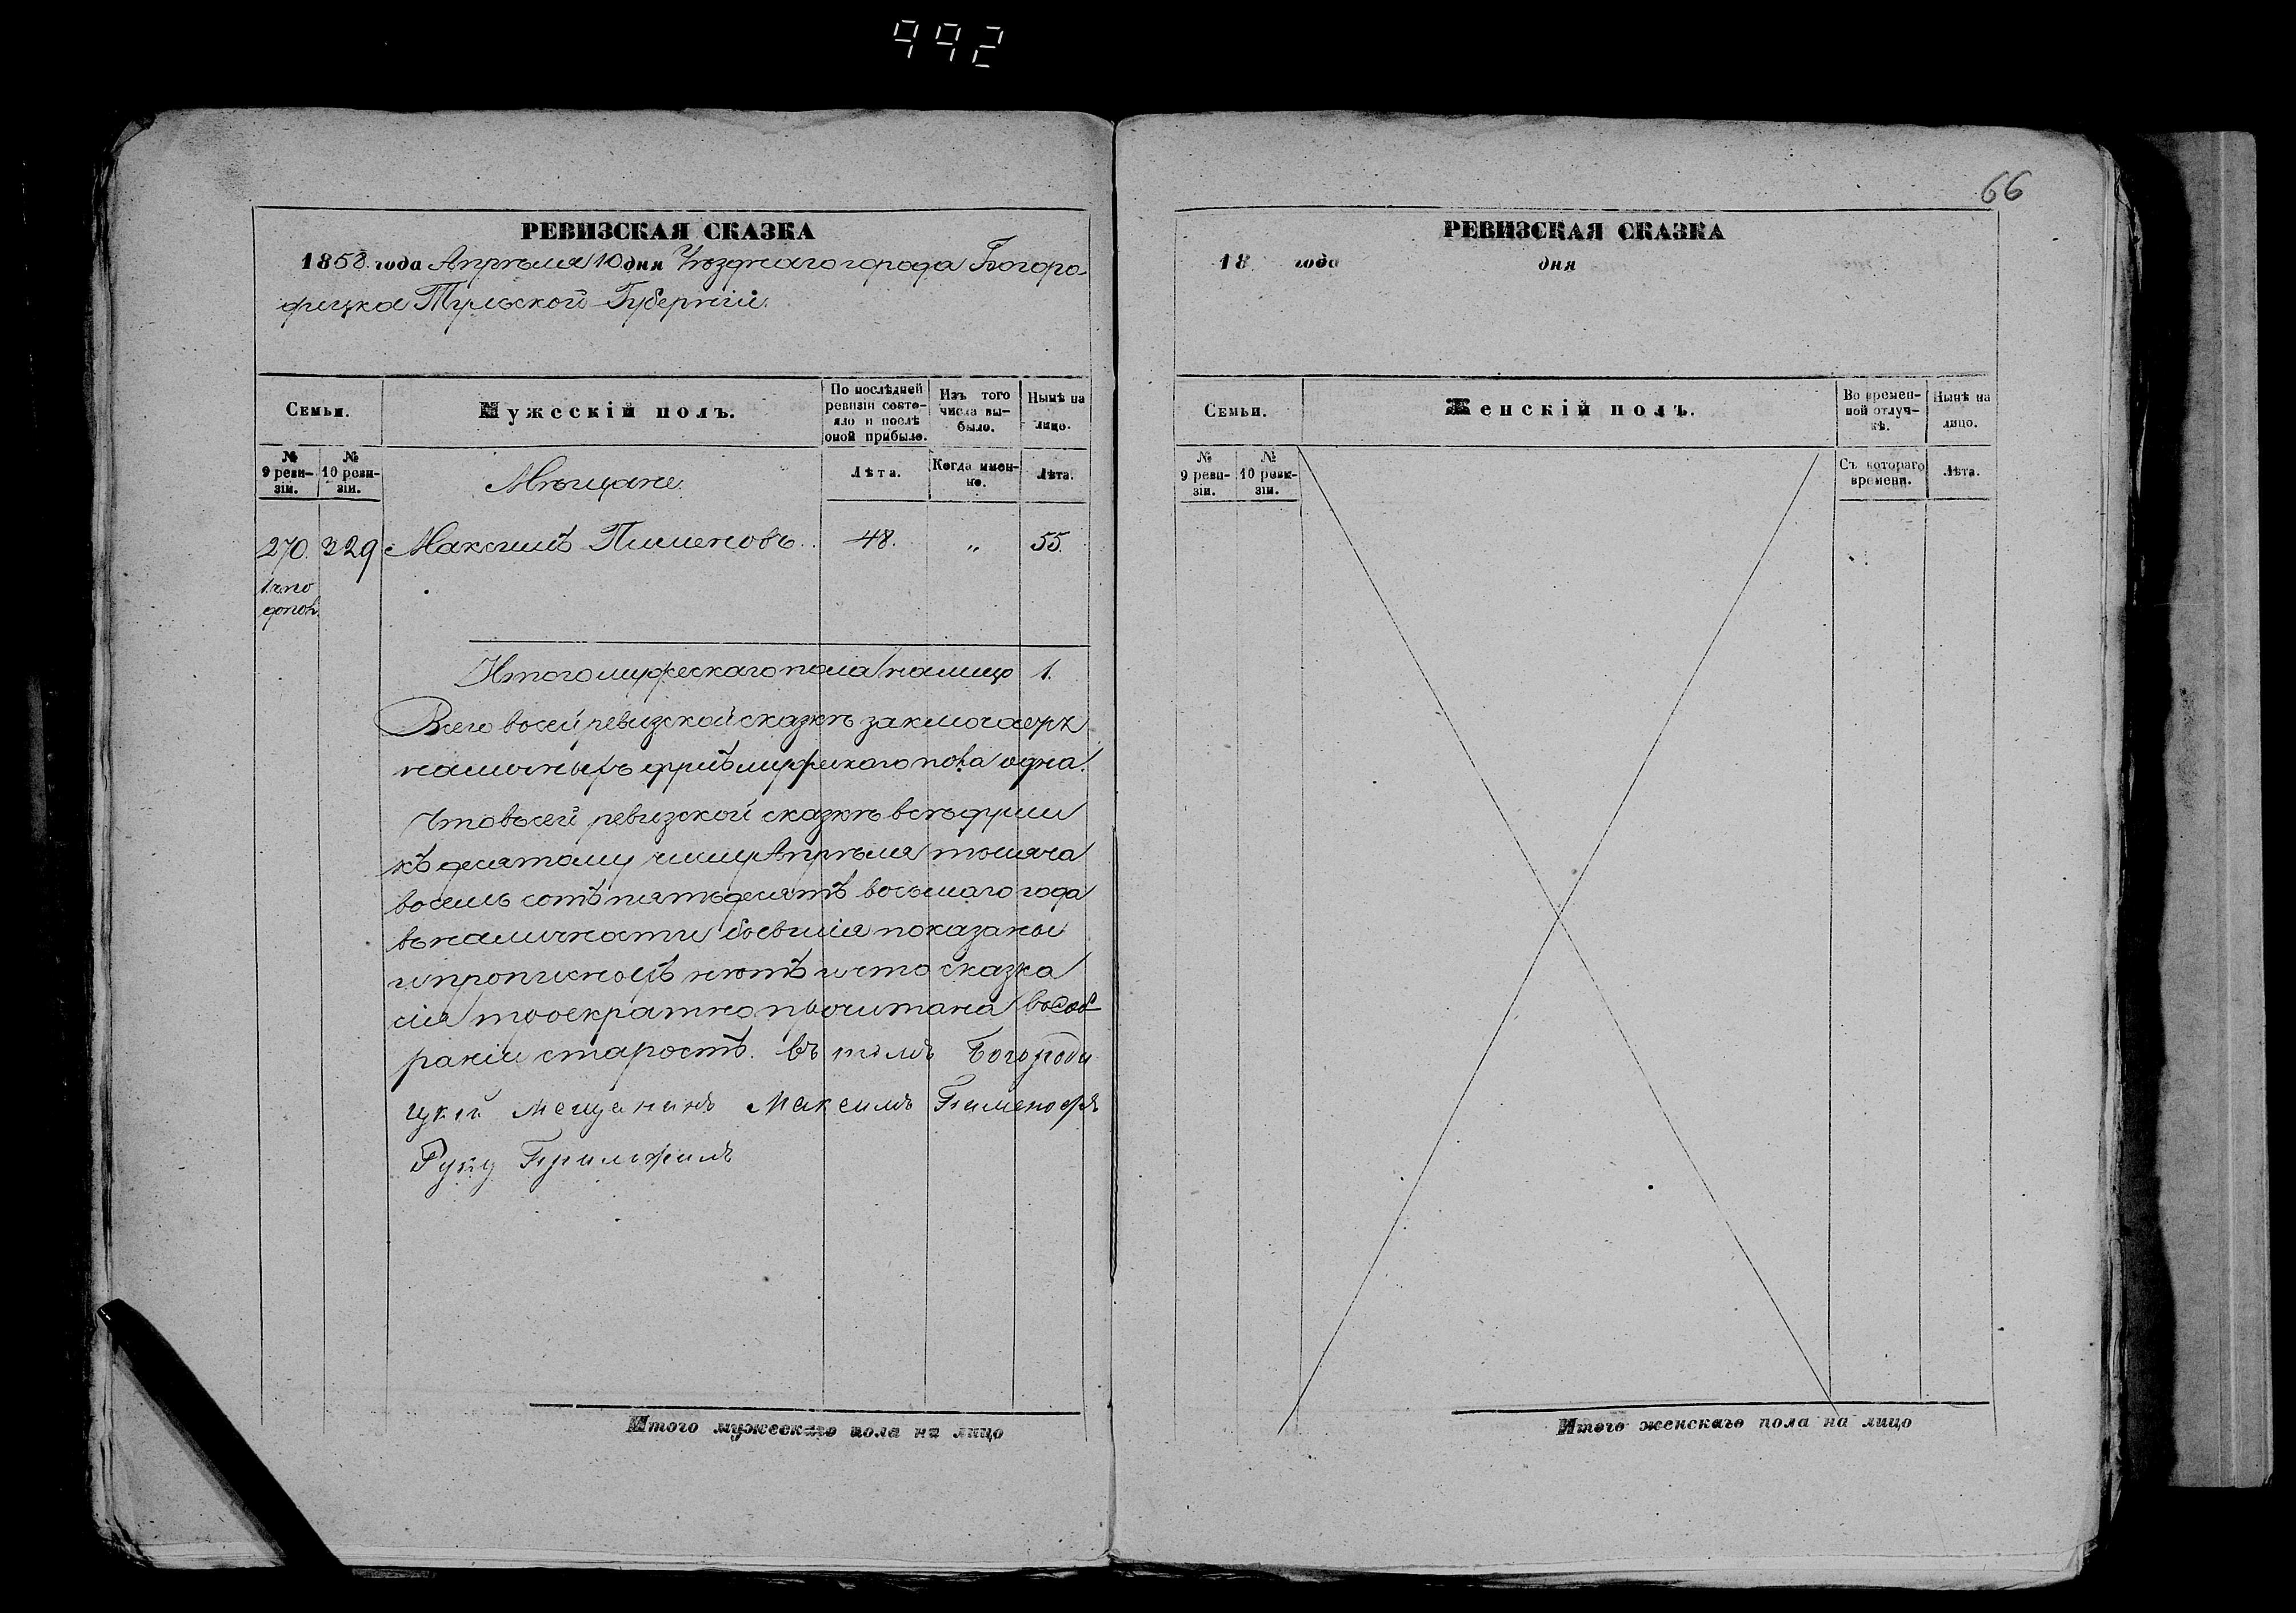 992
РЕВИЗСКАЯ СКАЗКА
1858. года Апрѣля 10 дня Уѣзднаго города Богоро
дицка Тульской Губерніи.
Семьи.
Мужескій полъ.
По послѣдней ревизіи состояло и послѣ оной прибыло.
Изъ того числа вы-было.
Нынѣ на лицо.
№ 9 реви-зіи.
№ 10 реви-зіи.
Мѣщане.
Лѣта.
Когда имен-но.
Лѣта.
270. 229 Максимъ Пименовъ. 48. „ 55.
Итого мужескаго пола налицо 1.
Всего в сей ревизской сказкѣ заключается
наличныхъ душъ мужескаго пола одна.
Что в сей ревизской сказкѣ всѣ души
къ десятому числу Апрѣля тысяча
восемь сотъ пятьдесятъ восьмаго года
въ наличности бывшія показаны
и прописныхъ нѣтъ и что сказка
сія троекратно прочитана в соб
раніи старостъ. въ томъ Богороди
цкій мещанинъ Максимъ Пименовъ
Руку Приложилъ
Итого мужескаго пола на лицо
66
РЕВИЗСКАЯ СКАЗКА
18 года дня
Семьи.
Женскій полъ.
Во времен-ной отлуч-кѣ.
Нынѣ на лицо.
№ 9 реви-зіи.
№ 10 реви-зіи.
Съ котораго времени.
Лѣта.
Итого женскаго пола на лицо